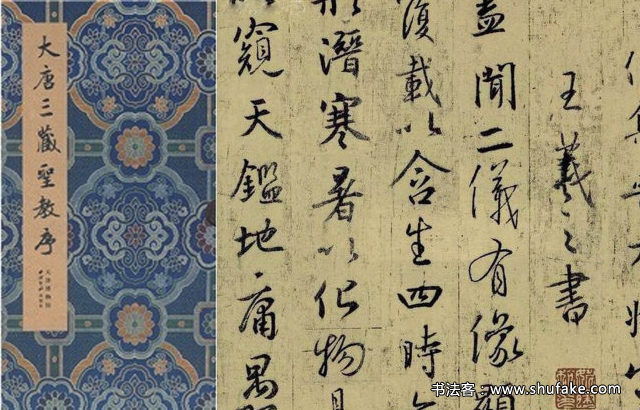 大唐三藏聖教序
天津博物館
王羲之書
蓋聞二儀有像顯
覆載以含生四時無
形潛寒暑以化物是
以窺天鑑地庸愚皆
书法客 www.shufake.com